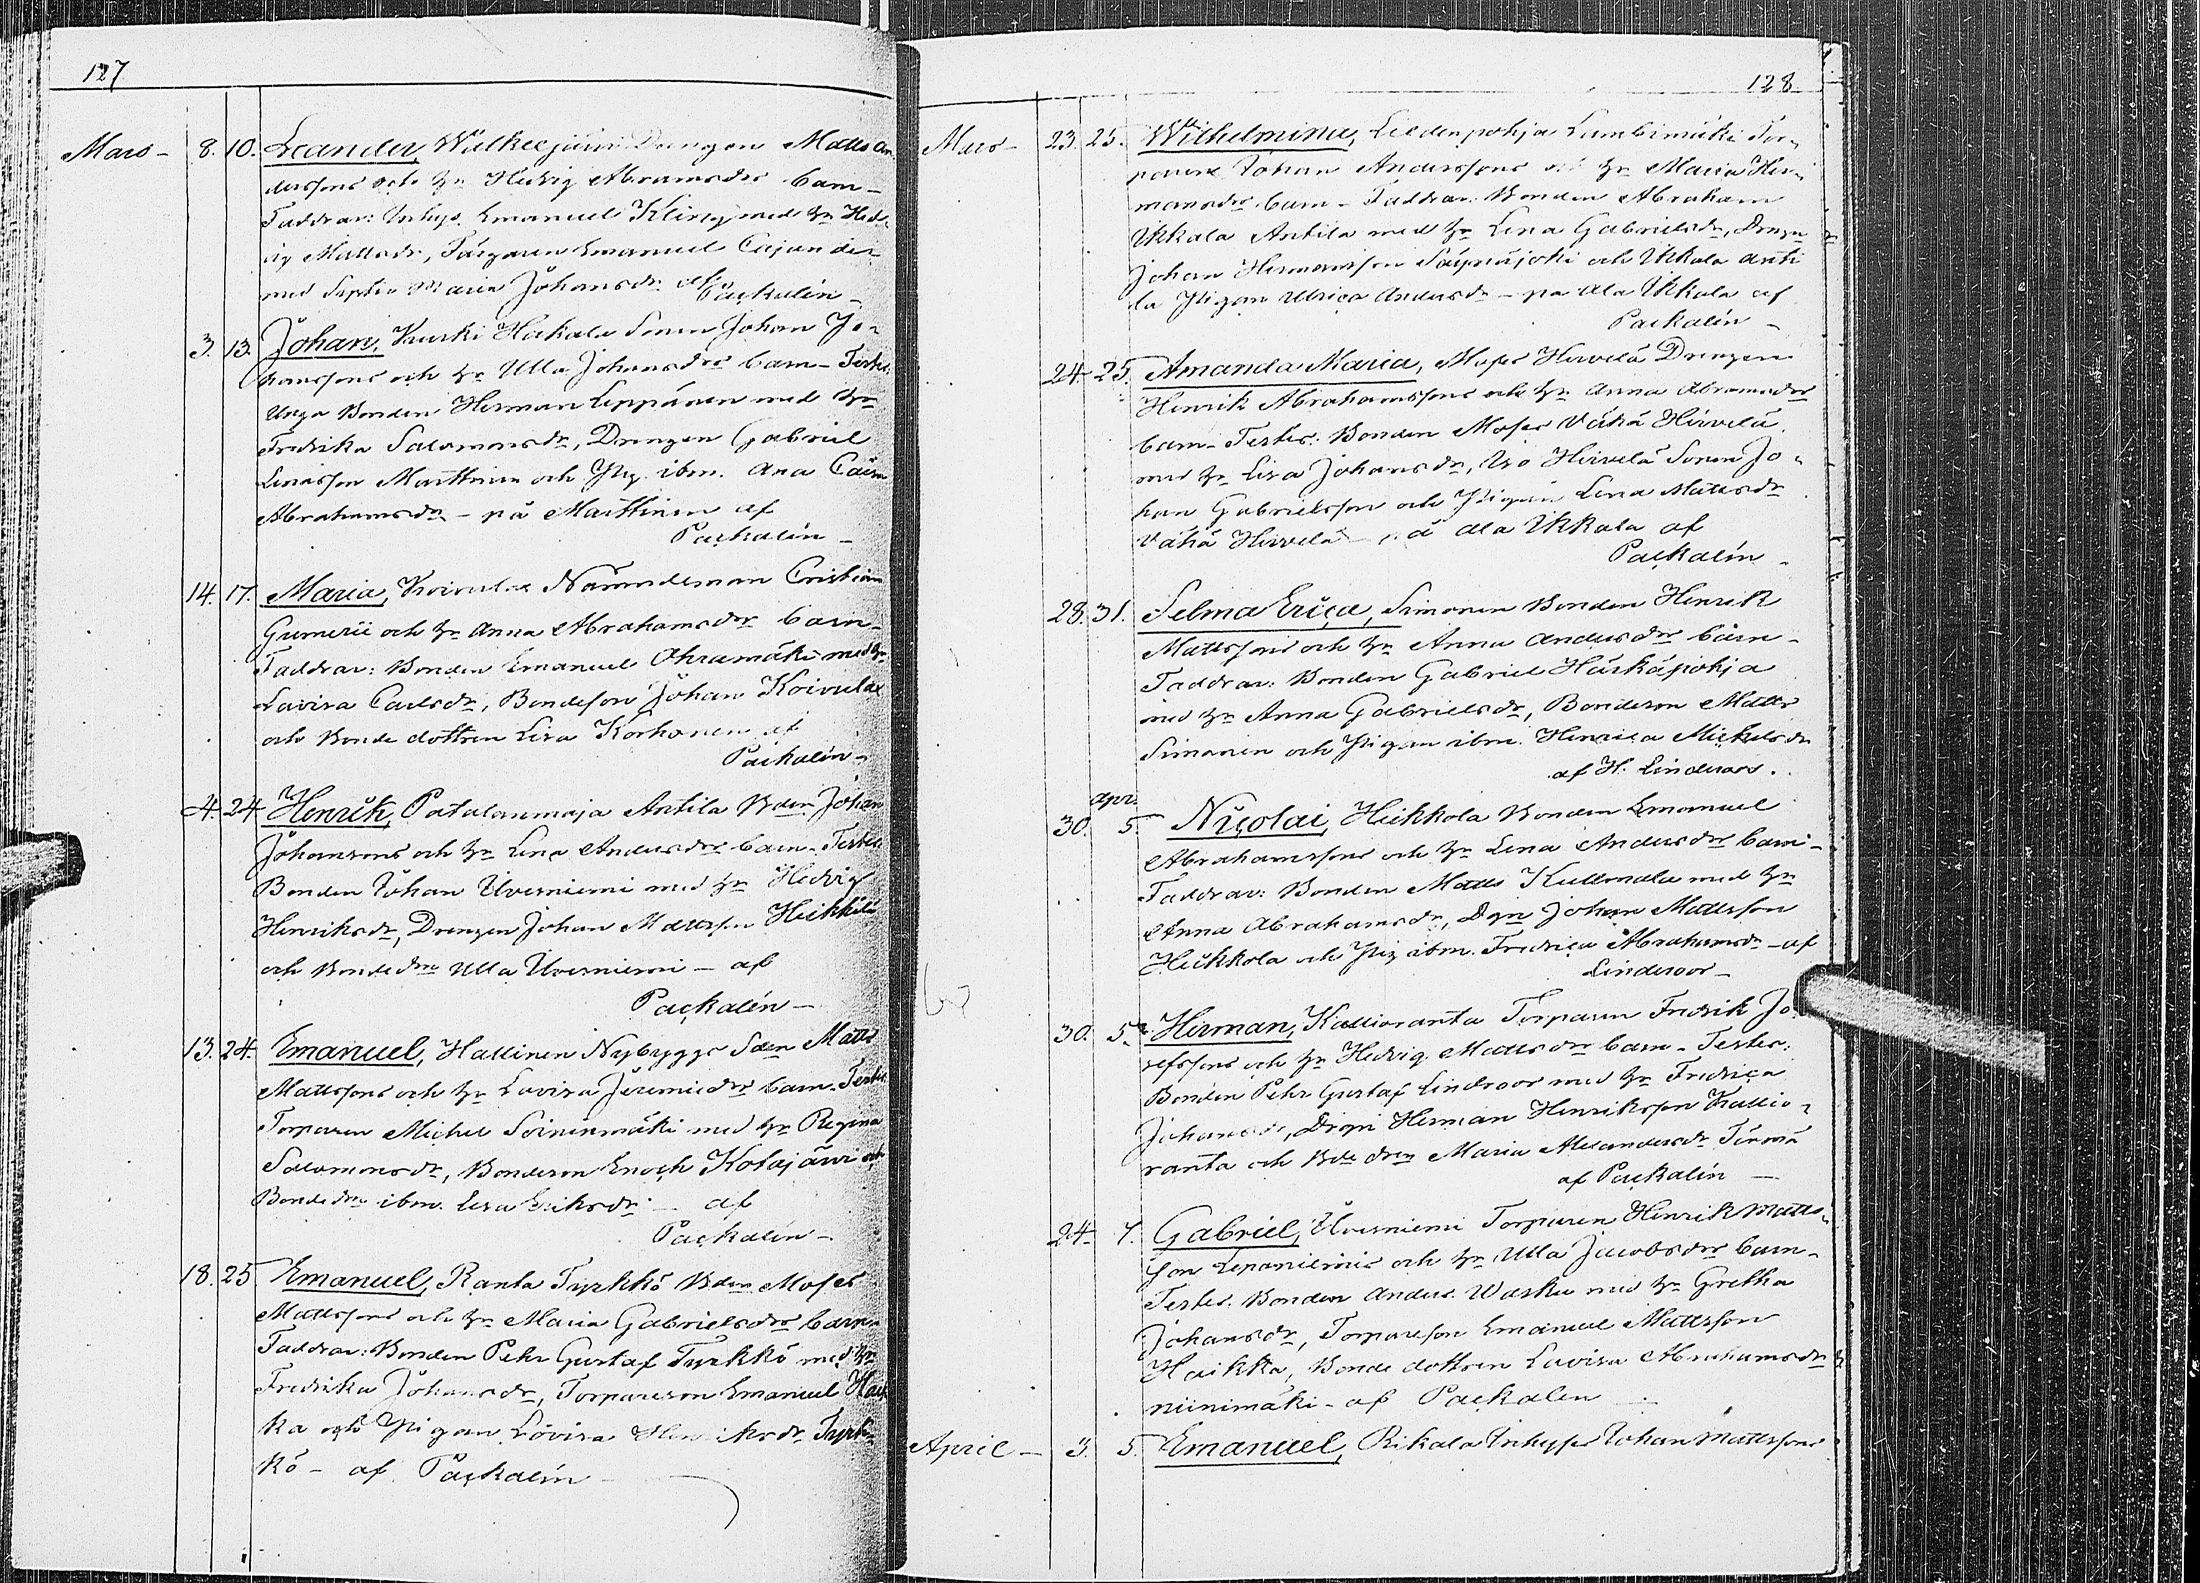 127
Mars – 8. 10. Leander, Walkeejärvi Drengen Matts An-
derssons och hr Hedvig Abramsdrs barn –
Faddrar: Inhys. Emanuel Kling med hr Hed-
vig Mattsdr, Färgaren Emanuel Cajander
med Maria Johansdr af Packalén –
3. 13. Johan, Kauski Hakala Sonen Johan Jo-
hanssons och hr Ulla Johansdrs barn – Testes
Unga Bonden Herman Leppänen med hr
Fredrika Salomonsdr, Drengen Gabriel
Marttinen och Pig. ibm. Ana Caisa
Abrahamsdr – på Marttinen af
Packalén –
14. 17. Maria, Koivulax Nämndeman Cristian
Gumerii och hr Anna Abrahamsdrs barn –
Faddrar: Bonden Emanuel Ohramäki med hr
Lovisa Carlsdr, Bondeson Johan Koivulax
och Bonde dottren Lisa Korhonen af
Packalén –
4. 24 Henrik, Patalanmaja Antila Bden Johan
Johanssons och hr Lena Andersdrs barn – Testes
Bonden Johan Uvesniemi med hr Hedvig
Henriksdr, Drengen Johan Mattsson Heikkilä
och Bondedrn Ulla Uvesniemi – af
Packalén –
13. 24. Emanuel, Hallinen Nybyggs Sden Matts
Mattssons och hr Lovisa Jeremiedrs barn – Testes
Torparen Michel Soininmäki med hr Regina
Salomonsdr, Bondeson Enoch Kotajärvi och
Bondedrn ibm. Lisa Eriksdr – af
Packalén –
18. 25 Emanuel, Ranta Tyrkkö Bden Moses
Mattssons och hr Maria Gabrielsdrs barn –
Faddrar: Bonden Pehr Gustaf Tyrkkö med hr
Fredrika Johansdr, Torpareson Emanuel Haik-
ka och Pigan Lovisa Henriksdr Tyrk-
kö – af Packalén
128
Mars – 23. 25. Wilhelmina, Leedenpohja Lambimäki Tor-
paren Johan Anderssons och hr Maria Her-
mansdrs barn – Faddrar: Bonden Abraham
Ikkala Antila med hr Lena Gabrielsdr, Drengn
Johan Hermansson Säynäjoki och Ikkala Anti-
la Pigan Ulrica Andersdr – på Ala Ikkala af
Packalén –
24. 25. Amanda Maria, Moses Hirvelä Drengen
Henrik Abrahamssons och hr Anna Abramsdrs
barn – Testes: Bonden Moses Vähä Hirvelä
med hr Lisa Johansdr, Iso Hirvelä Sonen Jo-
han Gabrielsson och Pigan Lena Mattsdr
Vähä Hirvelä – på Ala Ikkala af
Packalén –
28. 31. Selma Erica, Simonen Bonden Henrik
Mattssons och hr Anna Andersdrs barn –
Faddrar: Bonden Gabriel Härkäpohja
med hr Anna Gabrielsdr, Bondeson Matts
Simonen och Pigan ibm. Henrica Mickelsdr
af H. Lindroos.
apr.
30. 5. Nicolai, Heikkola Bonden Emanuel
Abrahamssons och hr Lena Andersdrs barn –
Faddrar: Bonden Matts Kullmala med hr
Anna Abrahamsdr, Dgn Johan Mattsson
Heikkola och Pig. ibm. Fredrica Abrahamsdr – af
Lindroos –
30. 5. Herman, Kallioranta Torparen Fredrik Jo-
sefssons och hr Hedvig Mattsdrs barn – Testes:
Bonden Pehr Gustaf Lindroos med hr Fredrica
Johansdr, Drgn Herman Henriksson Kallio-
ranta och Bde drn Maria Alexandersdr Törmä
af Packalén –
24. 7. Gabriel, Uvesniemi Torparen Henrik Matts-
son Lepaniemis och hr Ulla Jacobsdrs barn –
Testes: Bonden Anders Waske med hr Gretha
Johansdr, Torpareson Emanuel Mattsson
Haikka, Bonde dottren Lovisa Abrahamsdr
Niinimäki – af Packalen
April – 3. 5. Emanuel, Rikala Inhyses Johan Mattssons